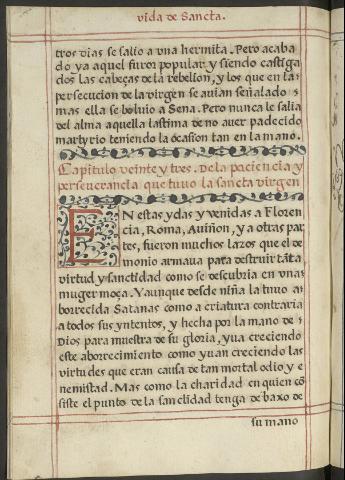 vida de Sancta.
tros dias se salio a vna hermita. Pero acaba
do ya aquel furor popular y siendo castiga
dos las cabeças de la rebelion, y los que en la
persecucion de la virgen se auian señalado :
mas ella se boluio a Sena. Pero nunca le salia
del alma aquella lastima de no auer padecido
martyrio teniendo la ocasion tan en la mano.
Capitulo veinte y tres. De la paciencia y
perseuerancia que tuuo la sancta virgen
EN estas ydas y venidas a Floren
cia, Roma, Auiñon, y a otras par
tes, fueron muchos lazos que el de
monio armaua para destruir tāta
virtud y sanctidad como se descubria en vna
muger moça. Y aunque desde niña la tuuo a
borrecida Satanas como a criatura contraria
a todos sus yntentos, y hecha por la mano de :
Dios para muestra de su gloria, yua creciendo
este aborrecimiento como yuan creciendo las
virtudes que eran causa de tan mortal odio y e
nemistad. Mas como la charidad en quien cō
siste el punto de la sanctidad tenga debaxo de
su mano